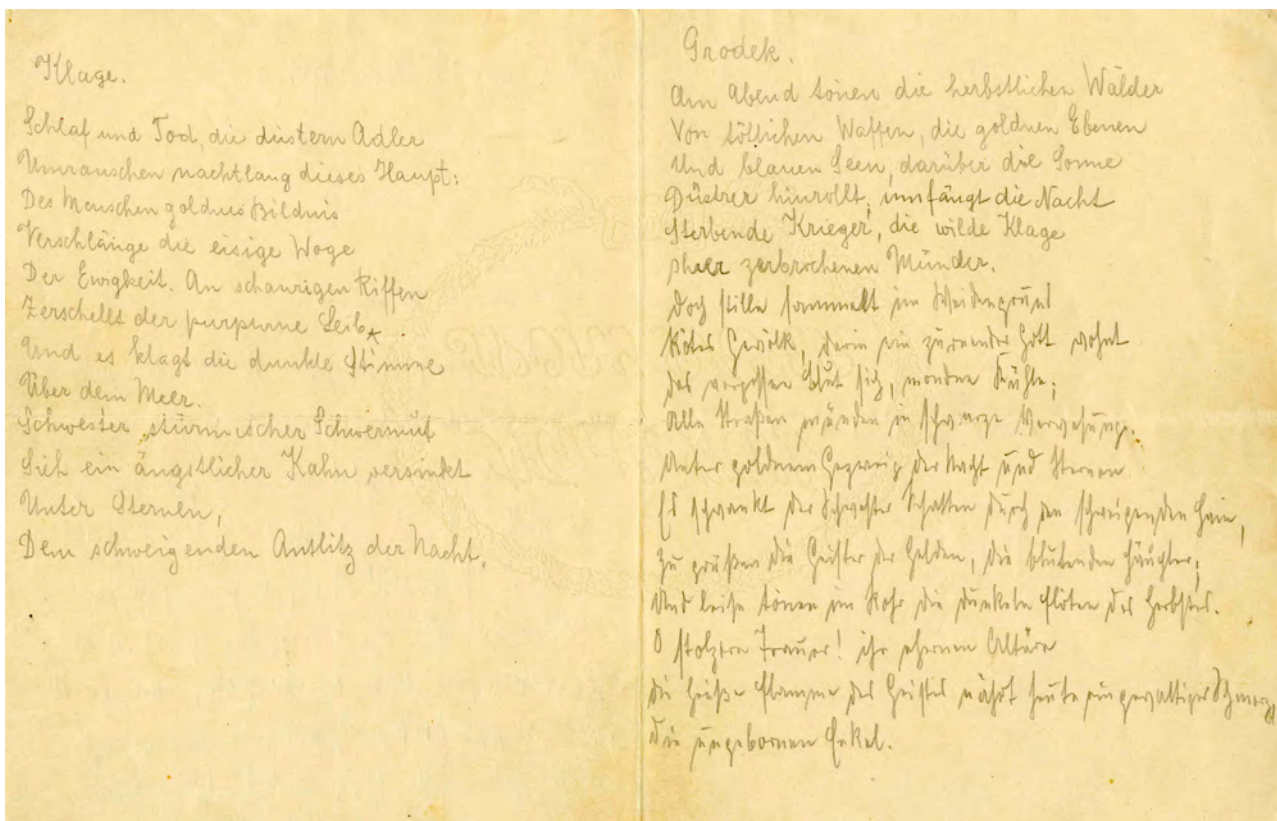 Klage.
Schlaf und Tod, die düstern Adler
Umrauschen nachtlang dieses Haupt:
Des Menschen goldnes Bildnis
Verschlänge die eisige Woge
Der Ewigkeit. An schaurigen Riffen
Zerschellt der purpurne Leib
Und es klagt die dunkle Stimme
Über dem Meer.
Schwester stürmischer Schwermut
Sieh ein ängstlicher Kahn versinkt
Unter Sternen,
Dem schweigenden Antlitz der Nacht.
Grodek.
Am Abend tönen die herbstlichen Wälder
Von tötlichen Waffen, die goldnen Ebenen
Und blauen Seen, darüber die Sonne
Düstrer hinrollt; umfängt die Nacht
Sterbende Krieger, die wilde Klage
Ihrer zerbrochenen Münder.
Doch stille sammelt im Weidengrund
Rotes Gewölk, darin ein zürnender Gott wohnt
Das vergossne Blut sich, mondne Kühle;
Alle Straßen münden in schwarze Verwesung.
Unter goldnem Gezweig der Nacht und Sternen
Es schwankt der Schwester Schatten durch den schweigenden Hain,
Zu grüßen die Geister der Helden, die blutenden Häupter;
Und leise tönen im Rohr die dunkeln Flöten des Herbstes.
O stolzere Trauer! ihr ehernen Altäre
Die heiße Flamme des Geistes nährt heute ein gewaltiger Schmerz,
Die ungebornen Enkel.